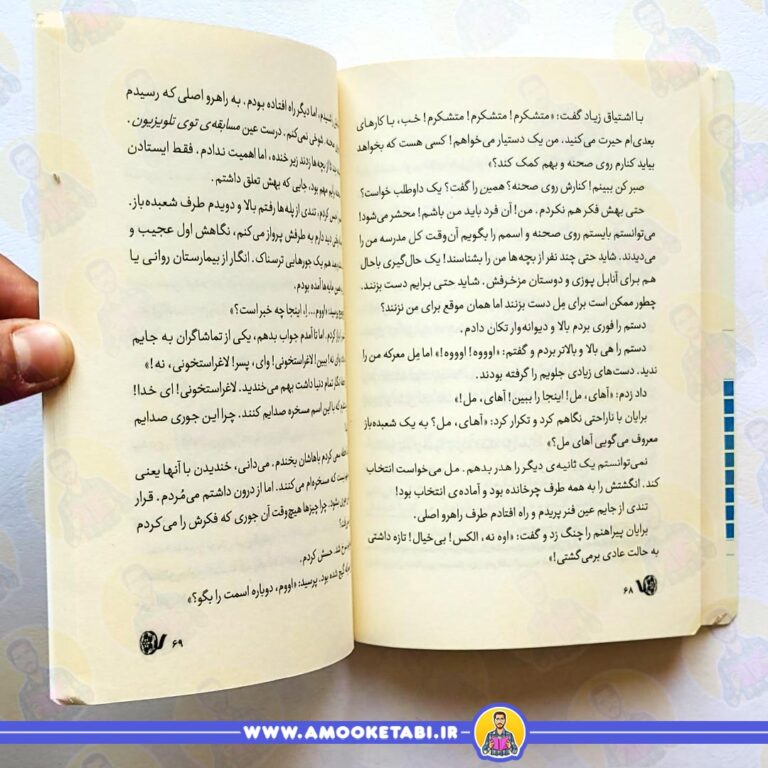 با اشتیاق زیاد گفت: «متشکرم! متشکرم! متشکرم! خب، با کارهای
بعدی‌ام حیرت می‌کنید. من یک دستیار می‌خواهم! کسی هست که بخواهد
بیاید کنارم روی صحنه و بهم کمک کند؟»
صبر کن ببینم! کنارش روی صحنه؟ همین را گفت؟ یک داوطلب خواست؟
حتی بهش فکر هم نکردم. من! آن فرد باید من باشم! محشر می‌شود!
می‌توانستم بایستم روی صحنه و اسمم را بگویم آن‌وقت کل مدرسه من را
می‌دیدند. شاید حتی چند نفر از بچه‌ها من را بشناسند! یک حال‌گیری باحال
هم برای آنابل پوزی و دوستان مزخرفش. شاید حتی برایم دست بزنند.
چطور ممکن است برای مِل دست بزنند اما همان موقع برای من نزنند؟
دستم را فوری بردم بالا و دیوانه‌وار تکان دادم.
دستم را هی بالا و بالاتر بردم و گفتم: «اوووه! اوووه!» اما مِل معرکه من را
ندید. دست‌های زیادی جلویم را گرفته بودند.
داد زدم: «آهای، مل! اینجا را ببین! آهای، مل!»
برایان با ناراحتی نگاهم کرد و تکرار کرد: «آهای، مل؟ به یک شعبده‌باز
معروف می‌گویی آهای مل؟»
نمی‌توانستم یک ثانیه‌ی دیگر را هدر بدهم. مل می‌خواست انتخاب
کند. انگشتش را به همه طرف چرخانده بود و آماده‌ی انتخاب بود!
تندی از جایم عین فنر پریدم و راه افتادم طرف راهرو اصلی.
برایان پیراهنم را چنگ زد و گفت: «اوه نه، الکس! بی‌خیال! تازه داشتی
به حالت عادی برمی‌گشتی!»
۶۸
اما دیگر راه افتاده بودم. به راهرو اصلی که رسیدم
شوخی نمی‌کنم. درست عین مسابقه‌ی توی تلویزیون.
از بچه‌ها زدند زیر خنده، اما اهمیت ندادم. فقط ایستادن
مهم بود، جایی که بهش تعلق داشتم.
کردم، تندی از پله‌ها رفتم بالا و دویدم طرف شعبده‌باز.
دید دارم به طرفش پرواز می‌کنم، نگاهش اول عجیب و
هم یک جورهایی ترسناک. انگار از بیمارستان روانی یا
آمده بودم.
پرسید: «اووم... اِ، اینجا چه خبر است؟»
کردم، اما تا آمدم جواب بدهم، یکی از تماشاگران به جایم
وای نه! ببین! لاغراستخونی! وای، پسر! لاغراستخونی، نه!»
تمام دنیا داشت بهم می‌خندید. لاغراستخونی! ای خدا!
که با این اسم مسخره صدایم کنند. چرا این جوری صدایم
کردم باهاشان بخندم. می‌دانی، خندیدن با آنها یعنی
که مسخره‌ام می‌کنند. اما از درون داشتم می‌مُردم. قرار
چرا چیزها هیچ‌وقت آن جوری که فکرش را می‌کردم
شد، حسش کردم.
گیج شده بود، پرسید: «اووم، دوباره اسمت را بگو؟»
۶۹
WWW.AMOOKETABI.IR